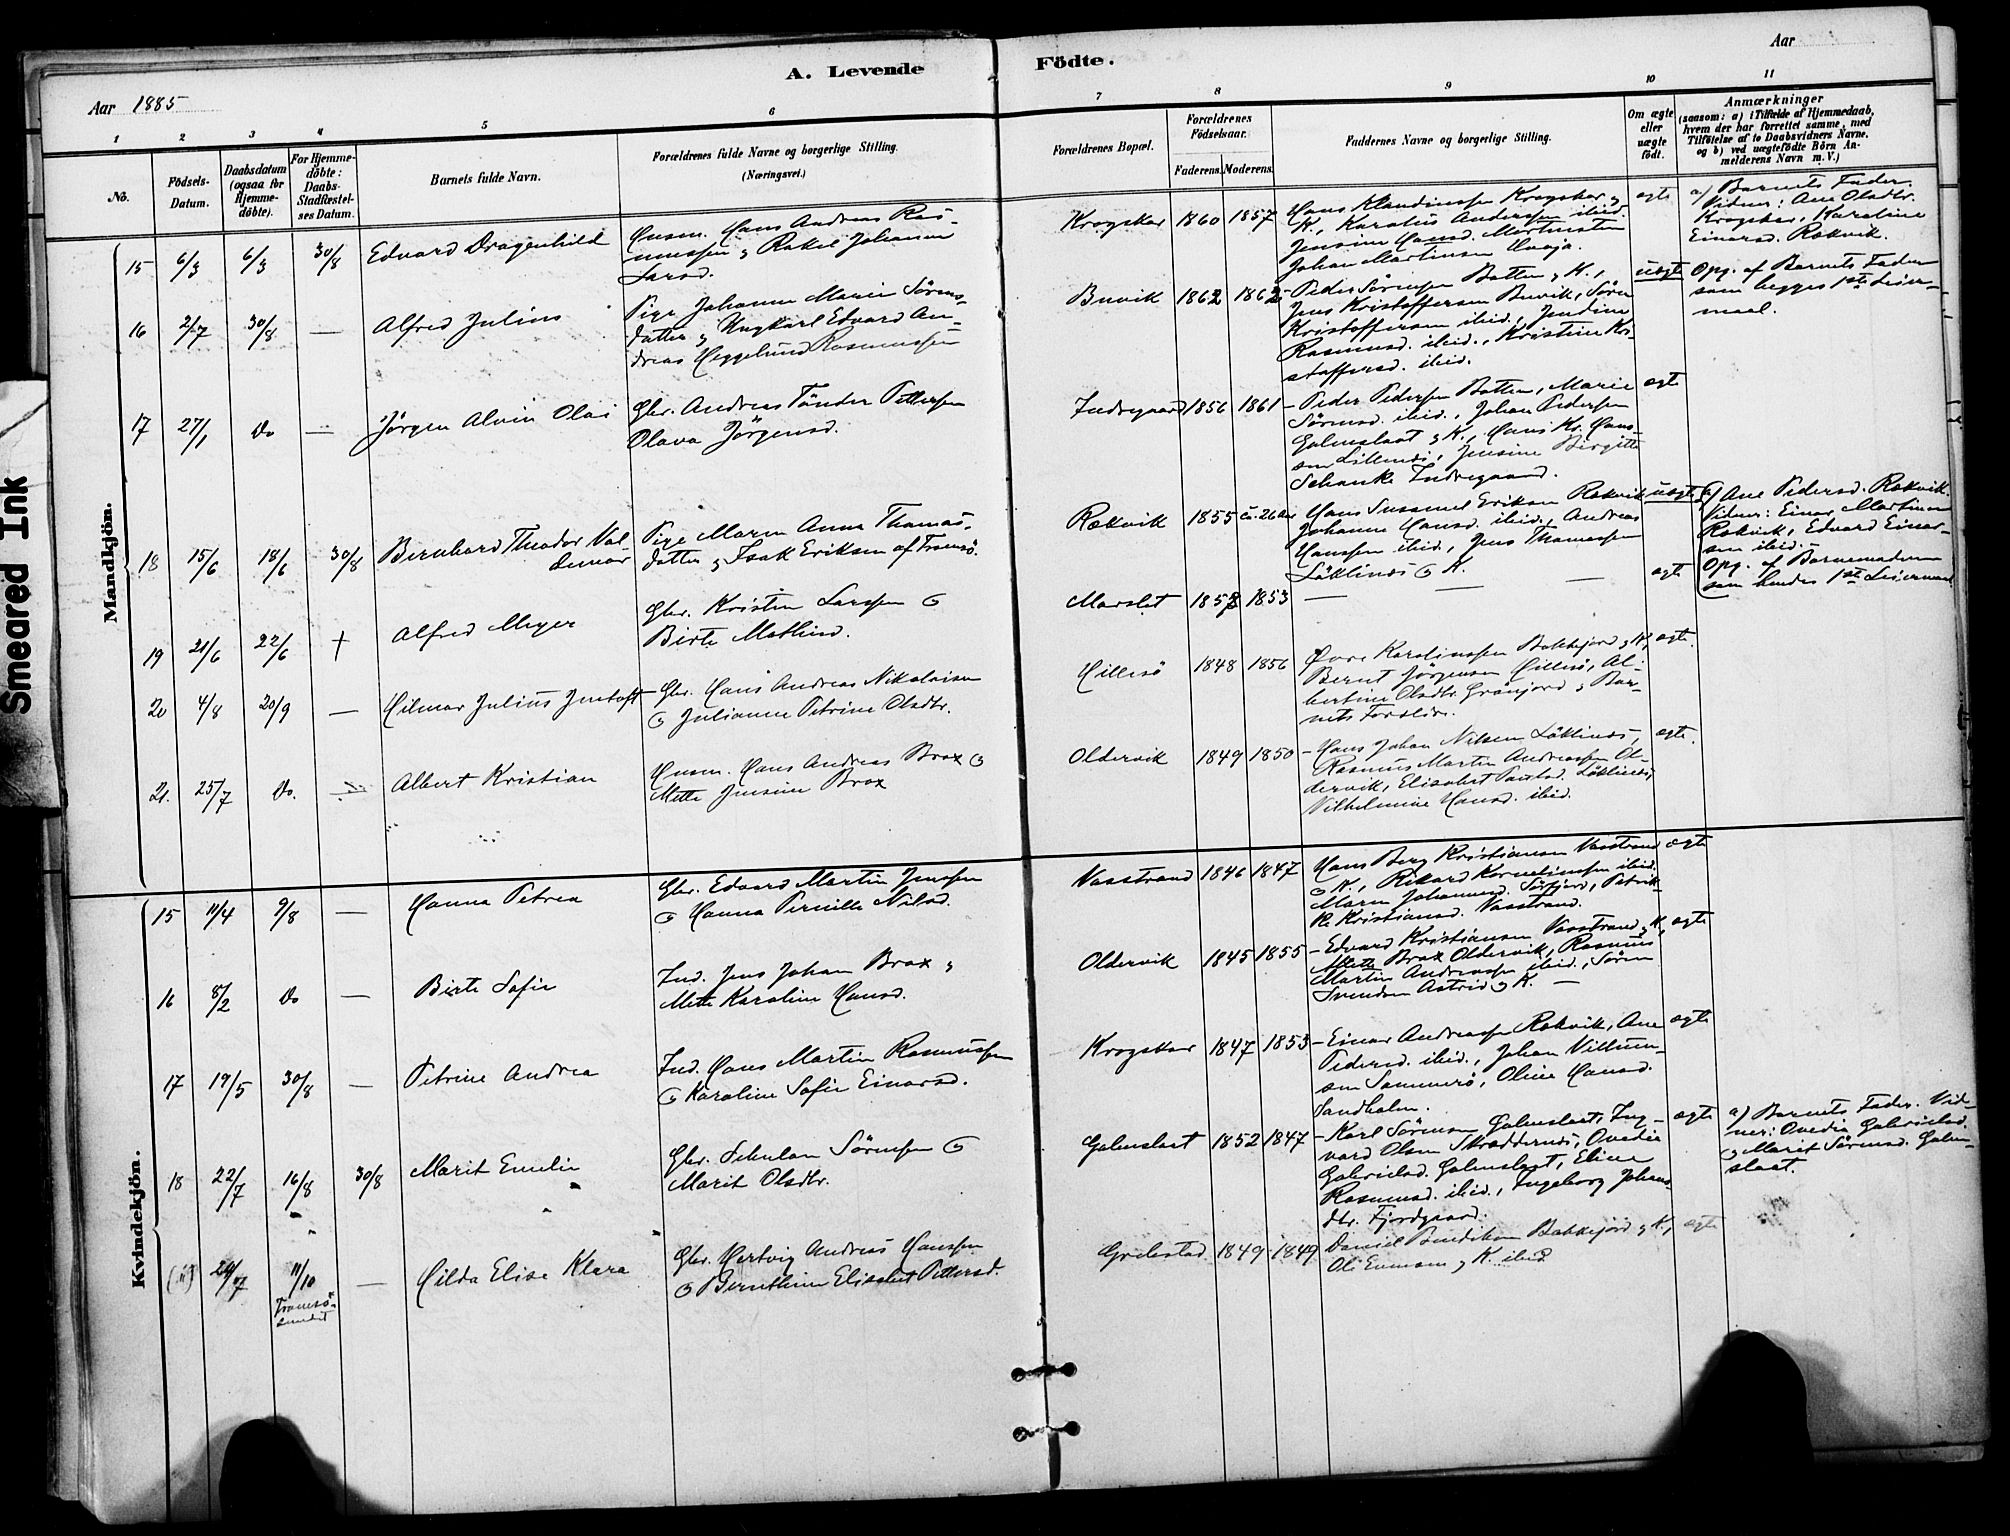 A. Levende Födte.
Aar 1885
Aar
1 2 3 4 5 6 7 8 9 10 11
No.
Födsels-Datum.
Daabsdatum (ogsaa for Hjemme-döbte).
For Hjemme-döbte: Daabs-Stadfæstel-ses Datum.
Barnets fulde Navn.
Forældrenes fulde Navne og borgerlige Stilling.
(Næringsvei.)
Forældrenes Bopæl.
Forældrenes Födselsaar.
Faderens. Moderens.
Faddernes Navne og borgerlige Stilling.
Om ægte eller uægte födt.
Anmærkninger
(saasom: a) i Tilfælde af Hjemmedaab,
hvem der har forrettet samme, med
Tilföielse af to Daabsvidners Navne.
og b) ved uægtefödte Börn An-
melderens Navn m. V.)
Smeared Ink
Mandkjön.
15 6/3 6/3 30/8 Edvard Dragenhild
Husm. Hans Andreas Ras-
mussen & Rakel Johanna
Larsd.
Krogskar 1860 1857
Hans Klaudiussen Krogskar &
K., Karolus Anderssen ibid.
Jensine Hansd. Martnesten
Johan Martinsen
ægte
a) Barnets Fader.
Vidner: Ane Olsdtr.
Krogskar, Karoline
Einarsd. Rækvik.
16 2/7 30/8 — Alfred Julius
Pige Johanna Marie Sörens-
datter & Ungkarl Edvard An-
dreas Heggelund Rasmussen
Buvik 1862 1862
Peder Sörensen Botten & K.,
Jens Kristoffersen Buvik, Sören
Kristoffersen ibid., Jensine
Rasmusd. ibid., Kristine Kri-
stoffersd. ibid.
uægte
Opg. af Barnets Fader
som begges 1ste Leier-
maal.
17 27/1 Do — Jörgen Alvin Olai
Gbr. Andreas Tönder Pettersen
Olava Jörgensd.
Indregaard 1856 1861
Peder Pedersen Botten, Marie
Sörensd. ibid., Johan Pedersen
Galnslaat & K., Hans Kr. Hans-
sen Lillenæs, Jensine Birgitte
Schanke Indregaard.
ægte
18 15/6 18/6 30/8 Bernhard Theodor Val-
demar
Pige Maren Anna Thomas-
datter & Isak Eriksen af Tromsö.
Rækvik 1855 ca. 26 Aar
Hans Susamel Eriksen Rækvik
Johanna Hansd. ibid., Andreas
Hanssen ibid., Jens Thomassen
Löklinæs & K.
uægte
a) Ane Pedersd. Rækvik.
Vidner: Einar Martinsen
Rækvik, Edvard Einar-
sen ibid.
Opg. af Barnemoderen
som hendes 1ste Leiermaal
19 21/6 22/6 † Alfred Meyer
Gbr. Kristen Larssen &
Birte Mathisd.
Marslet 1858 1853 — — — ægte
20 4/8 20/9 — Hilmar Julius Jentoft
Gbr. Hans Andreas Nikolaisen
& Julianna Petrine Olsdtr.
Hillesö 1848 1856
Karolinussen Bakkejord & K,
Bernt Jörgensen Hillesö, Al-
bertine Olsdtr. Grönjord & Bar-
nets Forældre.
ægte.
21. 25/7 Do. — Albert Kristian
Husm. Hans Andreas Brox &
Mette Jensine Brox
Oldervik 1849 1850
Hans Johan Nilsen Löklinæs,
Rasmus Martin Andreassen Ol-
dervik, Elisabet Paulsd. Löklinæs,
Vilhelmine Hansd. ibid.
ægte.
Kvindekjön.
15 11/4 9/8 — Hanna Petrea
Gbr. Edvard Martin Jenssen
& Hanna Pernille Nilsd.
Vasstrand 1846 1847
Hans Berg Kristiansen Vasstrand
& K., Rikard Kornelinssen ibid.
Maren Johannesd. Sörfjord, Petrik-
ke Kristiansd. Vasstrand.
ægte
16 8/2 Do — Birte Sofie
Ind. Jens Johan Brox &
Mette Karoline Hansd.
Oldervik 1845 1855
Edvard Kristiansen Vasstrand & K,
Mette Brox Oldervik, Rasmus
Martin Andreassen ibid., Sören
Svendsen Astrid & K. —
ægte
17 19/5 30/8 — Petrine Andrea
Ind. Hans Martin Rasmussen
& Karoline Sofie Einarsd.
Krogskar 1847 1853
Einar Andreassen Rækvik, Ane
Pedersd. ibid., Johan Villum-
sen Sommerö, Oline Hansd.
Sandholm.
ægte
18 22/7 16/8 30/8 Marit Emelie
Gbr. Schulan Sörensen &
Marit Olsdtr.
Galnslaat 1852 1847
Karl Sörensen Galnslaat, Ing-
vard Olsen Skræddernæs, Ovedia
Gabrielsd. Galnslaat, Eline
Rasmusd. ibid., Ingeborg Johans-
dtr. Fjordgaard.
ægte
a) Barnets Fader. Vid-
ner: Ovedia Gabrielsd.
& Marit Sörensd. Galn-
slaat.
24/7 11/10 — Hilda Elise Klara
Tromsö-
sundet
Gbr. Hertvig Andreas Hanssen
& Bernthine Elisabet Pettersd.
Grebstad 1849 1849
Daniel Bendiksen Bakkejord & K,
Ole Enemsen & K. ibid
ægte